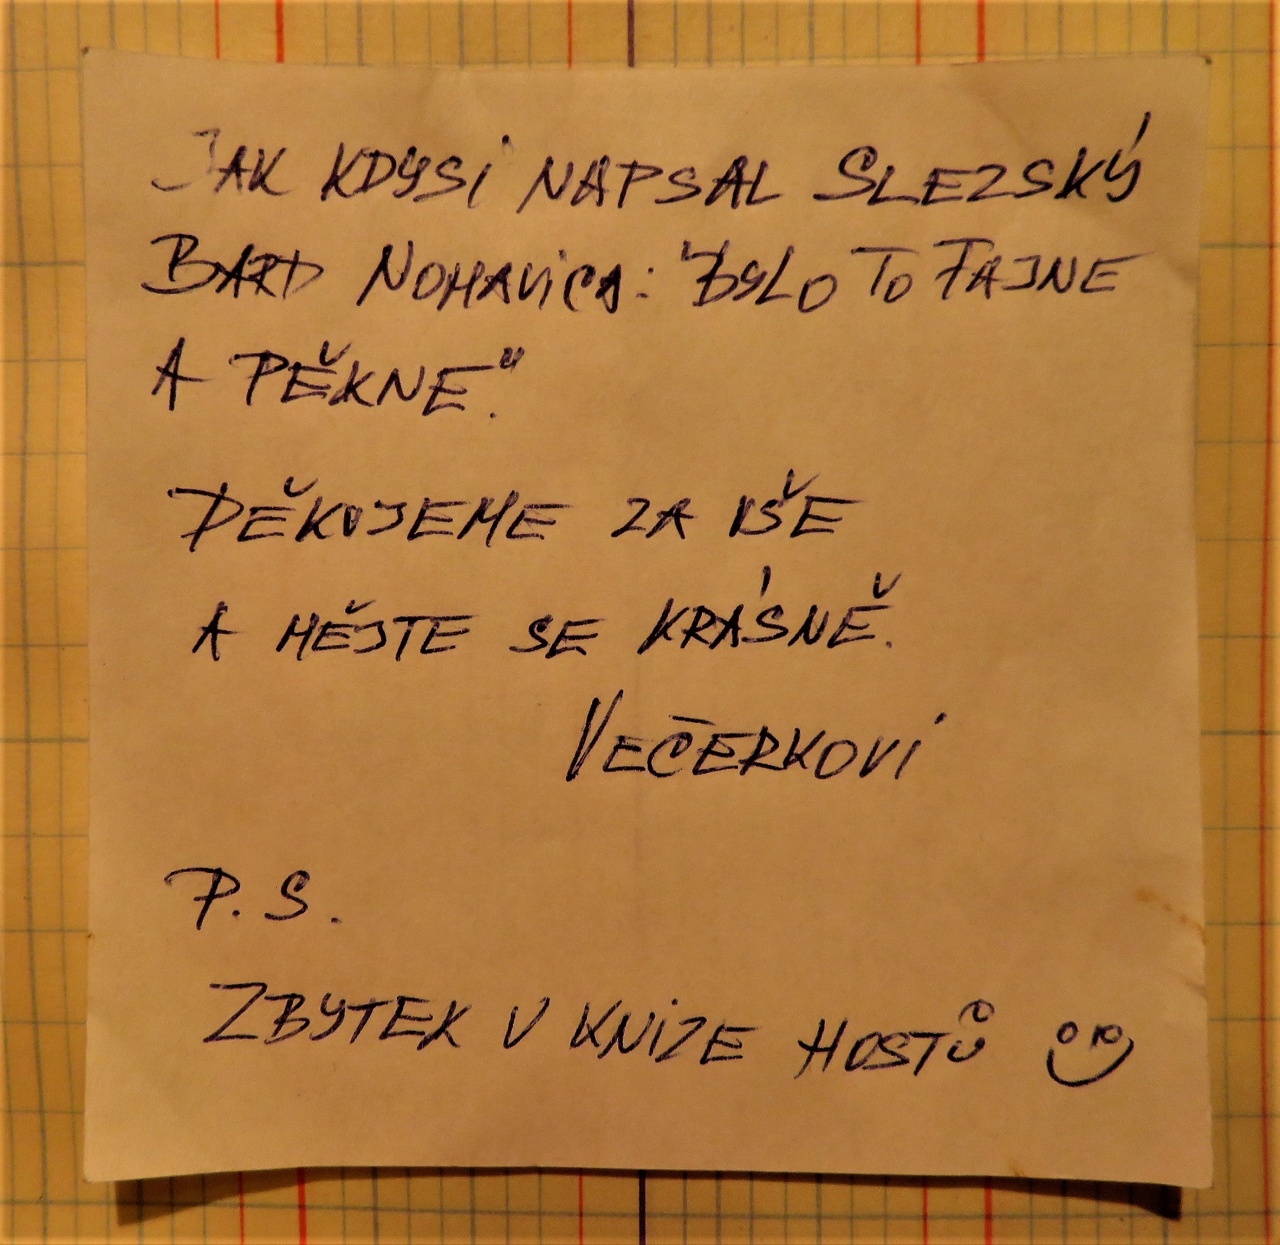 JAK KDYSI NAPSAL SLEZSKÝ
BARD NOHAVICA: "BYLO TO FAJNE
A PĚKNE."
DĚKUJEME ZA VŠE
A MĚJTE SE KRÁSNĚ.
VEČERKOVI
P.S.
ZBYTEK V KNIZE HOSTŮ